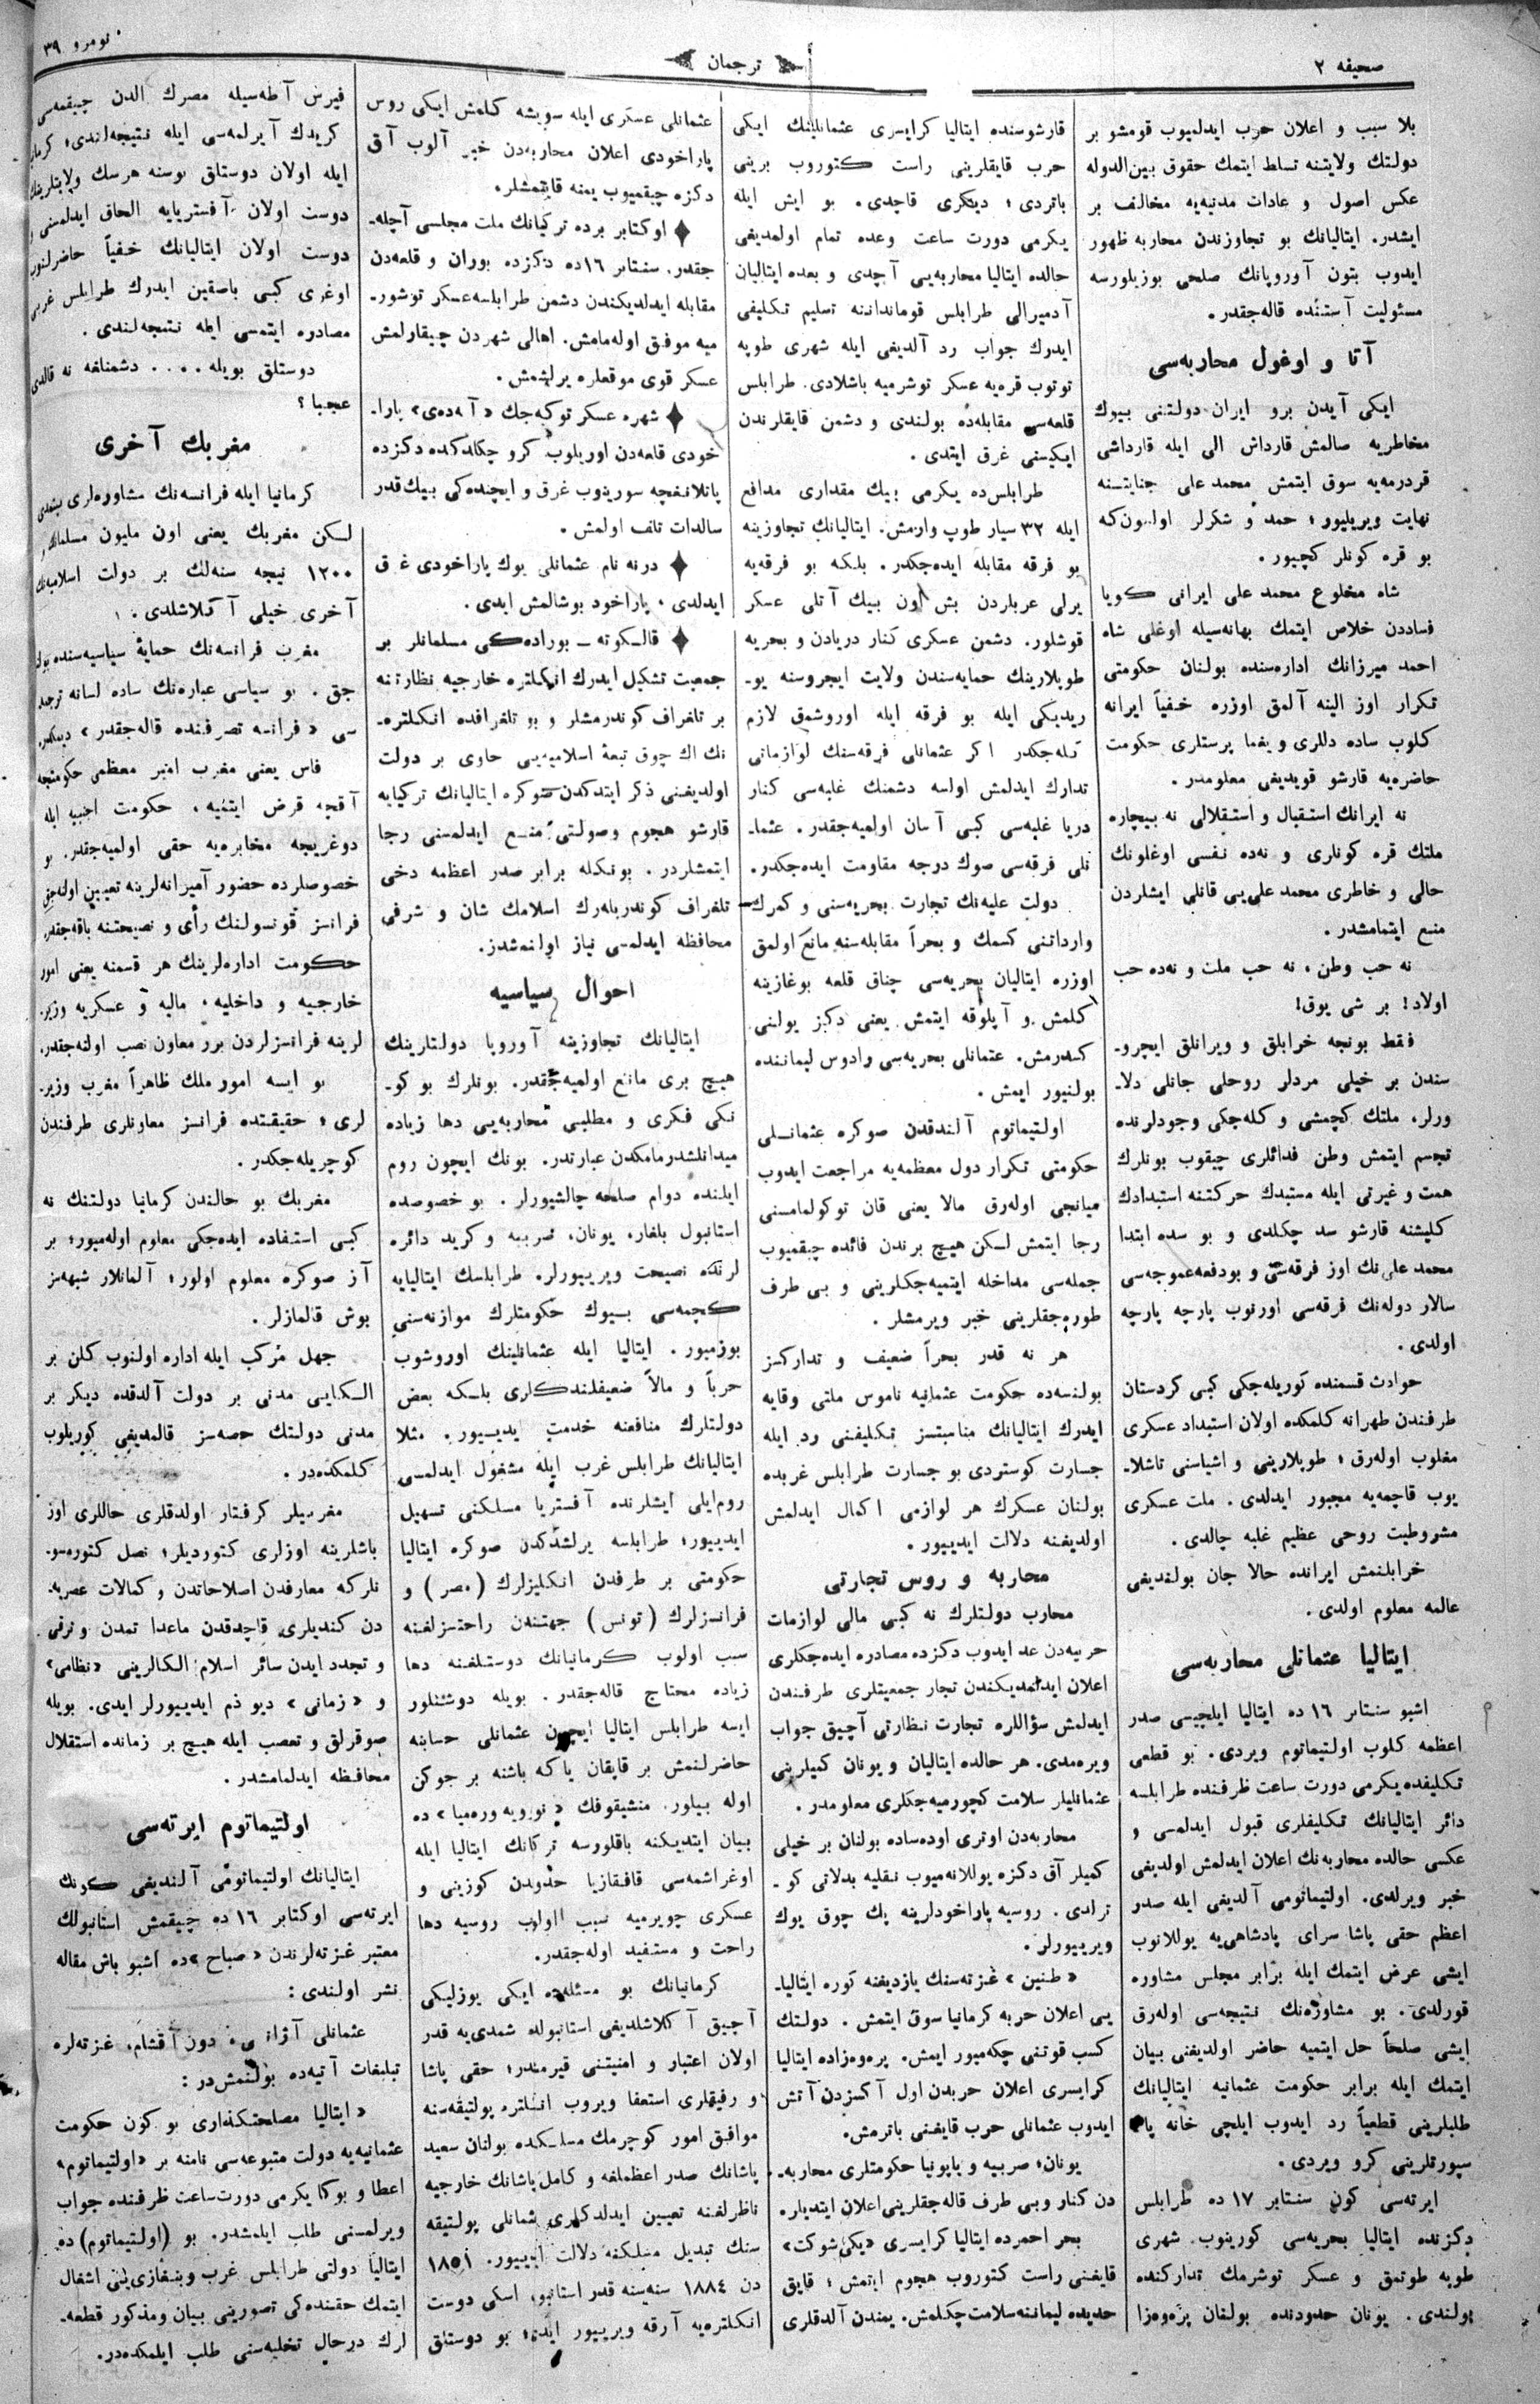 صحیفه ٢
ترجمان
نومرو ٣٩
بلا سبب و اعلان حرب ایدلمیوب قومشو بر
دولتك ولایتنه تسلط ایتمك حقوق بین‌الدوله
عكس اصول و عادات مدنیه‌یه مخالف بر
ایشدر. ایتالیانك بو تجاوزندن محاربه ظهور
ایدوب بتون آوروپانك صلحی بوزیلورسه
مسئولیت آستنده قاله‌جقدر.
آتا و اوغول محاربه‌سی
ایكی آیدن برو ایران دولتنی بیوك
مخاطریه صالمش قارداش الی ایله قارداشی
قردرمه‌یه سوق ایتمش محمد علی جنایتنه
نهایت ویریلیور؛ حمد و شكرلر اولسون‌كه
بو قره كونلر كچیور.
شاه مخلوع محمد علی ایرانی كویا
فساددن خلاص ایتمك بهانه‌سیله اوغلی شاه
احمد میرزانك اداره‌سنده بولنان حكومتی
تكرار اوز الینه آلمق اوزره خفیاً ایرانه
كلوب ساده دللری و یغما پرستلری حكومت
حاضره‌یه قارشو قویدیغی معلومدر.
نه ایرانك استقبال و استقلالی نه بیچاره
ملتك قره كونلری و نه‌ده نفسی اوغلونك
حالی و خاطری محمد علی‌یی قانلی ایشلردن
منع ایتمامشدر.
نه حب وطن، نه حب ملت و نه‌ده حب
اولاد! بر شی یوق!
فقط بونجه خرابلق و ویرانلق ایچرو-
سندن بر خیلی مردلر روحلی جانلی دلا-
ورلر، ملتك كچمشی و كله‌جكی وجودلرنده
تجسم ایتمش وطن فدائلری چیقوب بونلرك
همت و غیرتی ایله مستبدك حركتنه استبدادك
كلیشنه قارشو سد چكلدی و بو سده ابتدا
محمد علی‌نك اوز فرقه‌سی و بودفعه‌عموجه‌سی
سالار دوله‌نك فرقه‌سی اورنوب پارچه پارچه
اولدی.
حوادث قسمنده كوریله‌جكی كبی كردستان
طرفندن طهرانه كلمكده اولان استبداد عسكری
مغلوب اوله‌رق؛ طوپلارینی و اشیاسنی تاشلا-
یوب قاچمه‌یه مجبور ایدلدی. ملت عسكری
مشروطیت روحی عظیم غلبه چالدی.
خرابلنمش ایرانده حالا جان بولندیغی
عالمه معلوم اولدی.
ایتالیا عثمانلی محاربه‌سی
اشبو سنتابر ١٦ ده ایتالیا ایلچیسی صدر
اعظمه كلوب اولتیماتوم ویردی. بو قطعی
تكلیفده یكرمی دورت ساعت ظرفنده طرابلسه
دائر ایتالیانك تكلیفلری قبول ایدلمسی و
عكسی حالده محاربه‌نك اعلان ایدلمش اولدیغی
خبر ویرلدی. اولتیماتومی آلدیغی ایله صدر
اعظم حقی پاشا سرای پادشاهی‌یه یوللانوب
ایشی عرض ایتمك ایله برابر مجلس مشاوره
قورلدی. بو مشاوره‌نك نتیجه‌سی اوله‌رق
ایشی صلحاً حل ایتمیه حاضر اولدیغنی بیان
ایتمك ایله برابر حكومت عثمانیه ایتالیانك
طلبلرینی قطعیاً رد ایدوب ایلچی خانه پا
سپورتلرینی كرو ویردی.
ایرته‌سی كون سنتابر ١٧ ده طرابلس
دكزنده ایتالیا بحریه‌سی كورینوب شهری
طوپه طوتمق و عسكر توشرمك تداركنده
بولندی. یونان حدودنده بولنان پره‌وه‌زا
قارشوسنده ایتالیا كرایسری عثمانلینك ایكی
حرب قایقلرینی راست كتوروب برینی
باتردی؛ دیكری قاچدی. بو ایش ایله
یكرمی دورت ساعت وعده تمام اولمدیغی
حالده ایتالیا محاربه‌یی آچدی و بعده ایتالیان
آدمیرالی طرابلس قومانداننه تسلیم تكلیفی
ایدرك جواب رد آلدیغی ایله شهری طوپه
توتوب قره‌یه عسكر توشرمیه باشلادی. طرابلس
قلعه‌سی مقابله‌ده بولندی و دشمن قایقلرندن
ایكیسنی غرق ایتدی.
طرابلس‌ده یكرمی بیك مقداری مدافع
ایله ٣٢ سیار طوپ وارمش. ایتالیانك تجاوزینه
بو فرقه مقابله ایده‌جكدر. بلكه بو فرقه‌یه
یرلی عربلردن بش اون بیك آتلی عسكر
قوشلور. دشمن عسكری كنار دریادن و بحریه
طوپلارینك حمایه‌سندن ولایت ایچروسنه یو-
ریدیكی ایله بو فرقه ایله اوروشمق لازم
كله‌جكدر اكر عثمانلی فرقه‌سنك لوازماتی
تدارك ایدلمش اولسه دشمنك غلبه‌سی كنار
دریا غلبه‌سی كبی آسان اولمیه‌جقدر. عثما-
نلی فرقه‌سی صوك درجه مقاومت ایده‌جكدر.
دولت علیه‌نك تجارت بحریه‌سنی و كمرك
وارداتنی كسمك و بحراً مقابله‌سنه مانع اولمق
اوزره ایتالیان بحریه‌سی چناق قلعه بوغازینه
كلمش و آبلوقه ایتمش یعنی دكز یولنی
كسدرمش. عثمانلی بحریه‌سی رادوس لیماننده
بولنیور ایمش.
اولتیماتوم آلندقدن صوكره عثمانلی
حكومتی تكرار دول معظمه‌یه مراجعت ایدوب
میانجی اوله‌رق مالا یعنی قان توكولمامسنی
رجا ایتمش لكن هیچ برندن فائده چیقمیوب
جمله‌سی مداخله ایتمیه‌جكلرینی و بی طرف
طوره‌جقلرینی خبر ویرمشلر.
هر نه قدر بحراً ضعیف و تداركسز
بولنسه‌ده حكومت عثمانیه ناموس ملتی وقایه
ایدرك ایتالیانك مناسبتسز تكلیفنی رد ایله
جسارت كوستردی بو جسارت طرابلس غربده
بولنان عسكرك هر لوازمی اكمال ایدلمش
اولدیغنه دلالت ایدییور.
محاربه و روس تجارتی
محارب دولتلرك نه كبی مالی لوازمات
حربیه‌دن عد ایدوب دكزده مصادره ایده‌جكلری
اعلان ایدلمدیكندن تجار جمعیتلری طرفندن
ایدلمش سؤاللره تجارت نظارتی آچیق جواب
ویره‌مدی. هر حالده ایتالیان و یونان كمیلرینی
عثمانلیلر سلامت كچورمیه‌جكلری معلومدر.
محاربه‌دن اوتری اوده‌ساده بولنان بر خیلی
كمیلر آق دكزه یوللانه‌میوب نقلیه بدلاتی كو-
ترلدی. روسیه پاراخودلرینه پك چوق یوك
ویرییورلر.
«طنین» غزته‌سنك یازدیغنه كوره ایتالیا-
یی اعلان حربه كرمانیا سوق ایتمش. دولتك
كسب قوتنی چكه‌میور ایمش. پره‌وه‌زاده ایتالیا
كرایسری اعلان حربدن اول آكسزدن آتش
ایدوب عثمانلی حرب قایغنی باترمش.
یونان، صربیه و یاپونیا حكومتلری محاربه-
دن كنار و بی طرف قاله‌جقلرینی‌اعلان ایتدیلر.
بحر احمرده ایتالیا كرایسری «پیكی‌شوكت»
قایغنی راست كتوروب هجوم ایتمش؛ قایق
حدیده لیماننه سلامت چكلمش. یمندن آلدقلری
عثمانلی عسكری ایله سویشه كلمش ایكی روس
پاراخودی اعلان محاربه‌دن خبر آلوب آق
دكزه چیقمیوب یمنه قایتمشلر.
اوكتابر برده تركیانك ملت مجلسی آچله-
جقدر. سنتابر ١٦ده دكزده بوران و قلعه‌دن
مقابله ایدلدیكندن دشمن طرابلسه‌عسكر توشور-
میه موفق اوله‌مامش. اهالی شهردن چیقارلمش
عسكر قوی موقعلره یرلشمش.
شهره عسكر توكه‌جك «آ‌ه‌ده‌ی» پارا-
خودی قلعه‌دن اوریلوب كرو چكلدكده دكزده
پاتلانغچه سورینوب غرق و ایچنده‌كی بیك‌قدر
سالدات تلف اولمش.
درنه نام عثمانلی یوك پاراخودی غرق
ایدلدی، پاراخود بوشالمش ایدی.
قالكوته ــ بوراده‌كی مسلمانلر بر
جمعیت تشكیل ایدرك انكلتره خارجیه نظارتنه
بر تلغراف كوندرمشلر و بو تلغرافده انكلتره-
نك اك چوق تبعهٔ اسلامیه‌یی حاوی بر دولت
اولدیغنی ذكر ایتدكدن صوكره ایتالیانك تركیایه
قارشو هجوم وصولتی منع ایدلمسنی رجا
ایتمشلردر. بونكله برابر صدر اعظمه دخی
تلغراف كوندریله‌رك اسلامك شان و شرفی
محافظه ایدلمسی نیاز اولنمشدر.
احوال سیاسیه
ایتالیانك تجاوزینه آوروپا دولتلرینك
هیچ بری مانع اولمیه‌جقدر. بونلرك بو كو-
نكی فكری و مطلبی محاربه‌یی دها زیاده
میدانلشدرمامكدن عبارتدر. بونك ایچون روم
ایلنده دوام صلحه چالشیورلر. بو خصوصده
استانبول بلغار، یونان، صربیه و كرید دائره
لرنده نصیحت ویرییورلر. طرابلسك ایتالیایه
كچمه‌سی بیوك حكومتلرك موازنه‌سنی
بوزمیور. ایتالیا ایله عثمانلینك اوروشوب
حرباً و مالاً ضعیفلندكلری بلكه بعض
دولتلرك منافعنه خدمت ایدییور. مثلا
ایتالیانك طرابلس غرب ایله مشغول ایدلمسی
روم‌ایلی ایشلرنده آفستریا مسلكنی تسهیل
ایدییور؛ طرابلسه یرلشدكدن صوكره ایتالیا
حكومتی بر طرفدن انكلیزلرك (مصر) و
فرانسزلرك (تونس) جهتندن راحتسزلغنه
سبب اولوب كرمانیانك دوستلغنه دها
زیاده محتاج قاله‌جقدر. بویله دوشنلور
ایسه طرابلس ایتالیا ایچون عثمانلی حسابنه
حاضرلنمش بر قاپقان یاكه باشنه بر جوكن
اوله بیلور. منشیقوفك «نوویه وره‌میا» ده
بیان ایتدیكنه باقلورسه تركانك ایتالیا ایله
اوغراشمه‌سی قافقازیا حدودن كوزینی و
عسكری چویرمیه سبب اولوب روسیه دها
راحت و مستفید اوله‌جقدر.
كرمانیانك بو مسئله‌ده ایكی یوزلیكی
آچیق آكلاشلدیغی استانبولده شمدی‌یه قدر
اولان اعتبار و امنیتنی قیرمشدر؛ حقی پاشا
و رفیقلری استعفا ویروب انكلتره پولتیقه‌سنه
موافق امور كوچرمك مسلكنده بولنان سعید
پاشانك صدر اعظملغه و كامل پاشانك خارجیه
ناظرلغنه تعیین ایدلدكلری عثمانلی پولتیقه
سنك تبدیل مسلكنه دلالت ایدییور. ١٨٥١
دن ١٨٨٤ سنه‌سنه قدر استانبول اسكی دوست
انكلتره‌یه آرقه ویرییور ایدی؛ بو دوستلق
قبرس آطه‌سیله مصرك الدن چیقمه‌سی
كریدك آیرلمه‌سی ایله نتیجه‌لندی؛ كرمانیا
ایله اولان دوستلق بوسنه هرسك ولایتلرینك
دوست اولان آفستریایه الحاق ایدلمسنی و
دوست اولان ایتالیانك خفیاً حاضرلنوب
اوغری كبی باصقین ایدرك طرابلس غربی
مصادره ایتمسی ایله نتیجه‌لندی.
دوستلق بویله .... دشمنلغه نه قالدی
عجبا؟
مغربك آخری
كرمانیا ایله فرانسه‌نك مشاوره‌لری بیتمدی
لكن مغربك یعنی اون ملیون مسلمانك
١٢٠٠ نیچه سنه‌لك بر دولت اسلامیه‌نك
آخری خیلی آكلاشلدی.
مغرب فرانسه‌نك حمایهٔ سیاسیه‌سنده بولنه
جق. بو سیاسی عباره‌نك ساده لسانه ترجمه
سی «فرانسه تصرفنده قاله‌جقدر» دیمكدر.
فاس یعنی مغرب امیر معظمی حكومتجه
آقچه قرض ایتمیه، حكومت اجنبیه ایله
دوغریجه مخابره‌یه حقی اولمیه‌جقدر. بو
خصوصلرده حضور آمیرانه‌لرینه تعیین اوله‌جق
فرانسز قونسولنك رأی و نصیحتنه باقه‌جقدر.
حكومت اداره‌لرینك هر قسمنه یعنی امور
خارجیه و داخلیه، مالیه و عسكریه وزیر-
لرینه فرانسزلردن برر معاون نصب اولنه‌جقدر.
بو ایسه امور ملك ظاهراً مغرب وزیر-
لری؛ حقیقتده فرانسز معاونلری طرفندن
كوچریله‌جكدر.
مغربك بو حالندن كرمانیا دولتنك نه
كبی استفاده ایده‌جكی معلوم اوله‌میور؛ بر
آز صوكره معلوم اولور؛ آلمانلار شبهه‌سز
بوش قالمازلر.
جهل مركب ایله اداره اولنوب كلن بر
الكایی مدنی بر دولت آلدقده دیكر بر
مدنی دولتك حصه‌سز قالمدیغی كوریلوب
كلمكده‌در.
مغربیلر كرفتار اولدقلری حاللری اوز
باشلرینه اوزلری كتوردیلر؛ نصل كتورمسو-
نلركه معارفدن اصلاحاتدن و كمالات عصریه-
دن كندیلری قاچدقدن ماعدا تمدن و ترقی
و تجدد ایدن سائر اسلام الكالرینی «نظامی»
و «زمانی» دیو ذم ایدییورلر ایدی. بویله
صوقرلق و تعصب ایله هیچ بر زمانده استقلال
محافظه ایدلمامشدر.
اولتیماتوم ایرته‌سی
ایتالیانك اولتیماتومی آلندیغی كونك
ایرته‌سی اوكتابر ١٦ ده چیقمش استانبولك
معتبر غزته‌لرندن «صباح»ده اشبو باش مقاله
نشر اولندی:
عثمانلی آژانسی دون آقشام، غزته‌لره
تبلیغات آتیه‌ده بولنمش‌در:
«ایتالیا مصلحتكذاری بو كون حكومت
عثمانیه‌یه دولت متبوعه‌سی نامنه بر «اولتیماتوم»
اعطا و بوكا یكرمی دورت‌ساعت ظرفنده جواب
ویرلمسنی طلب ایلمشدر. بو (اولتیماتوم) ده
ایتالیا دولتی طرابلس غرب وبنغازی‌یی اشغال
ایتمك حقنده‌كی تصورینی بیان ومذكور قطعه-
لرك درحال تخلیه‌سنی طلب ایلمكده‌در.